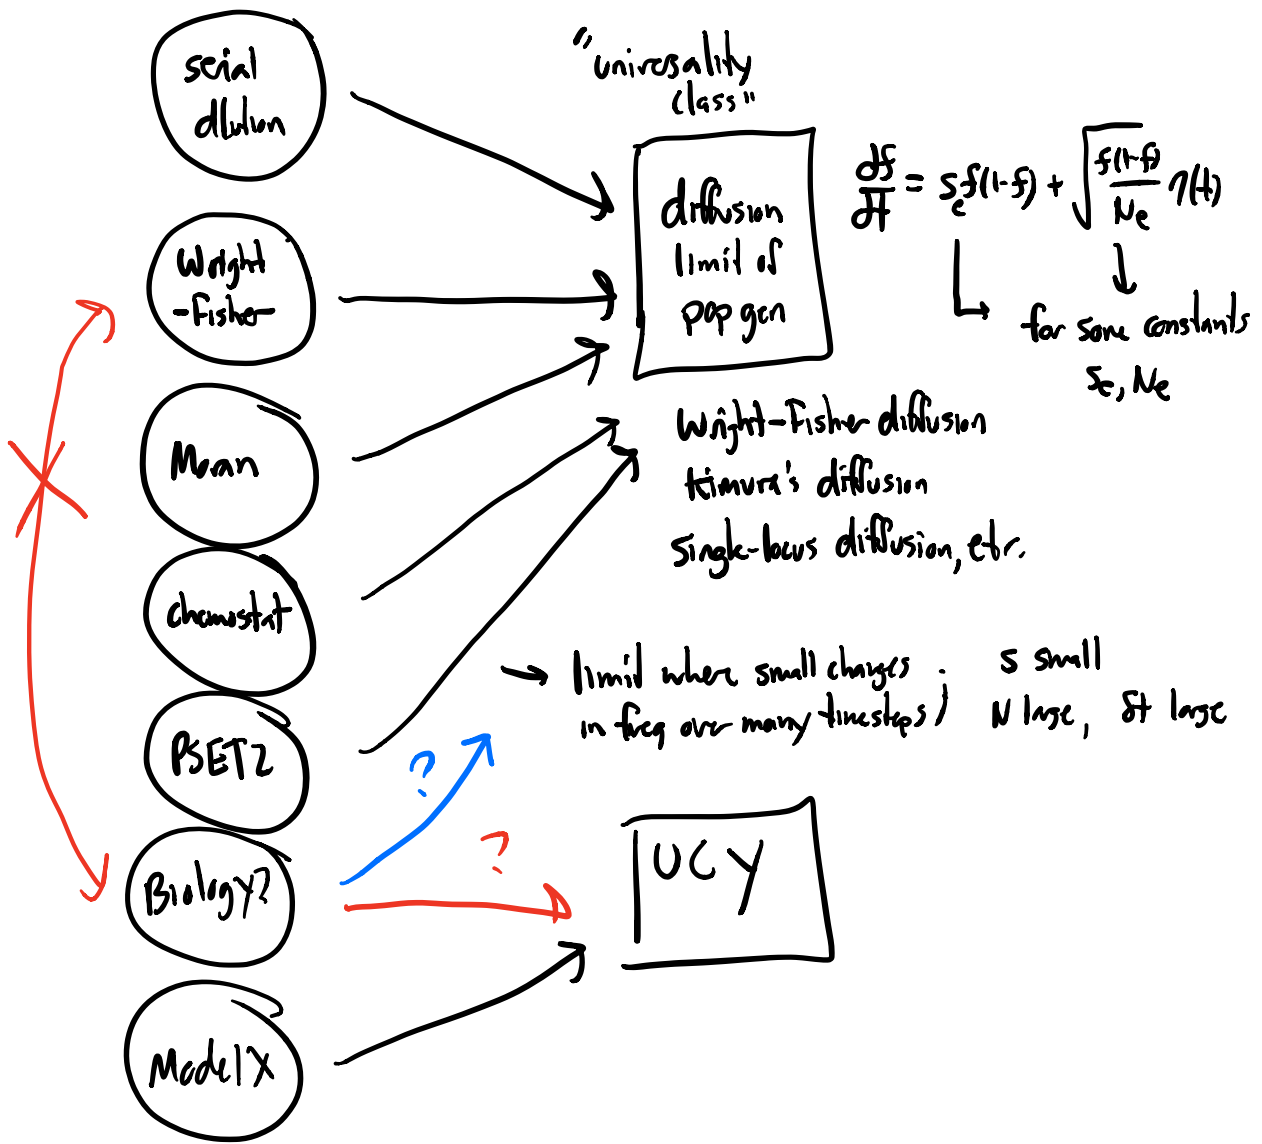 serial
dlution
Wright
-Fisher
Moran
Chemostat
PSET2
Biology?
Model X
"universality
class"
diffusion
limit of
pop gen
df/dt = s_e f(1-f) + √(f(1-f)/N_e) η(t)
for some constants
s_e, N_e
Wright-Fisher diffusion
Kimura's diffusion
single-locus diffusion, etc.
→ limit where small changes ; s small
in freq over many timesteps N large, δt large
?
?
UCY